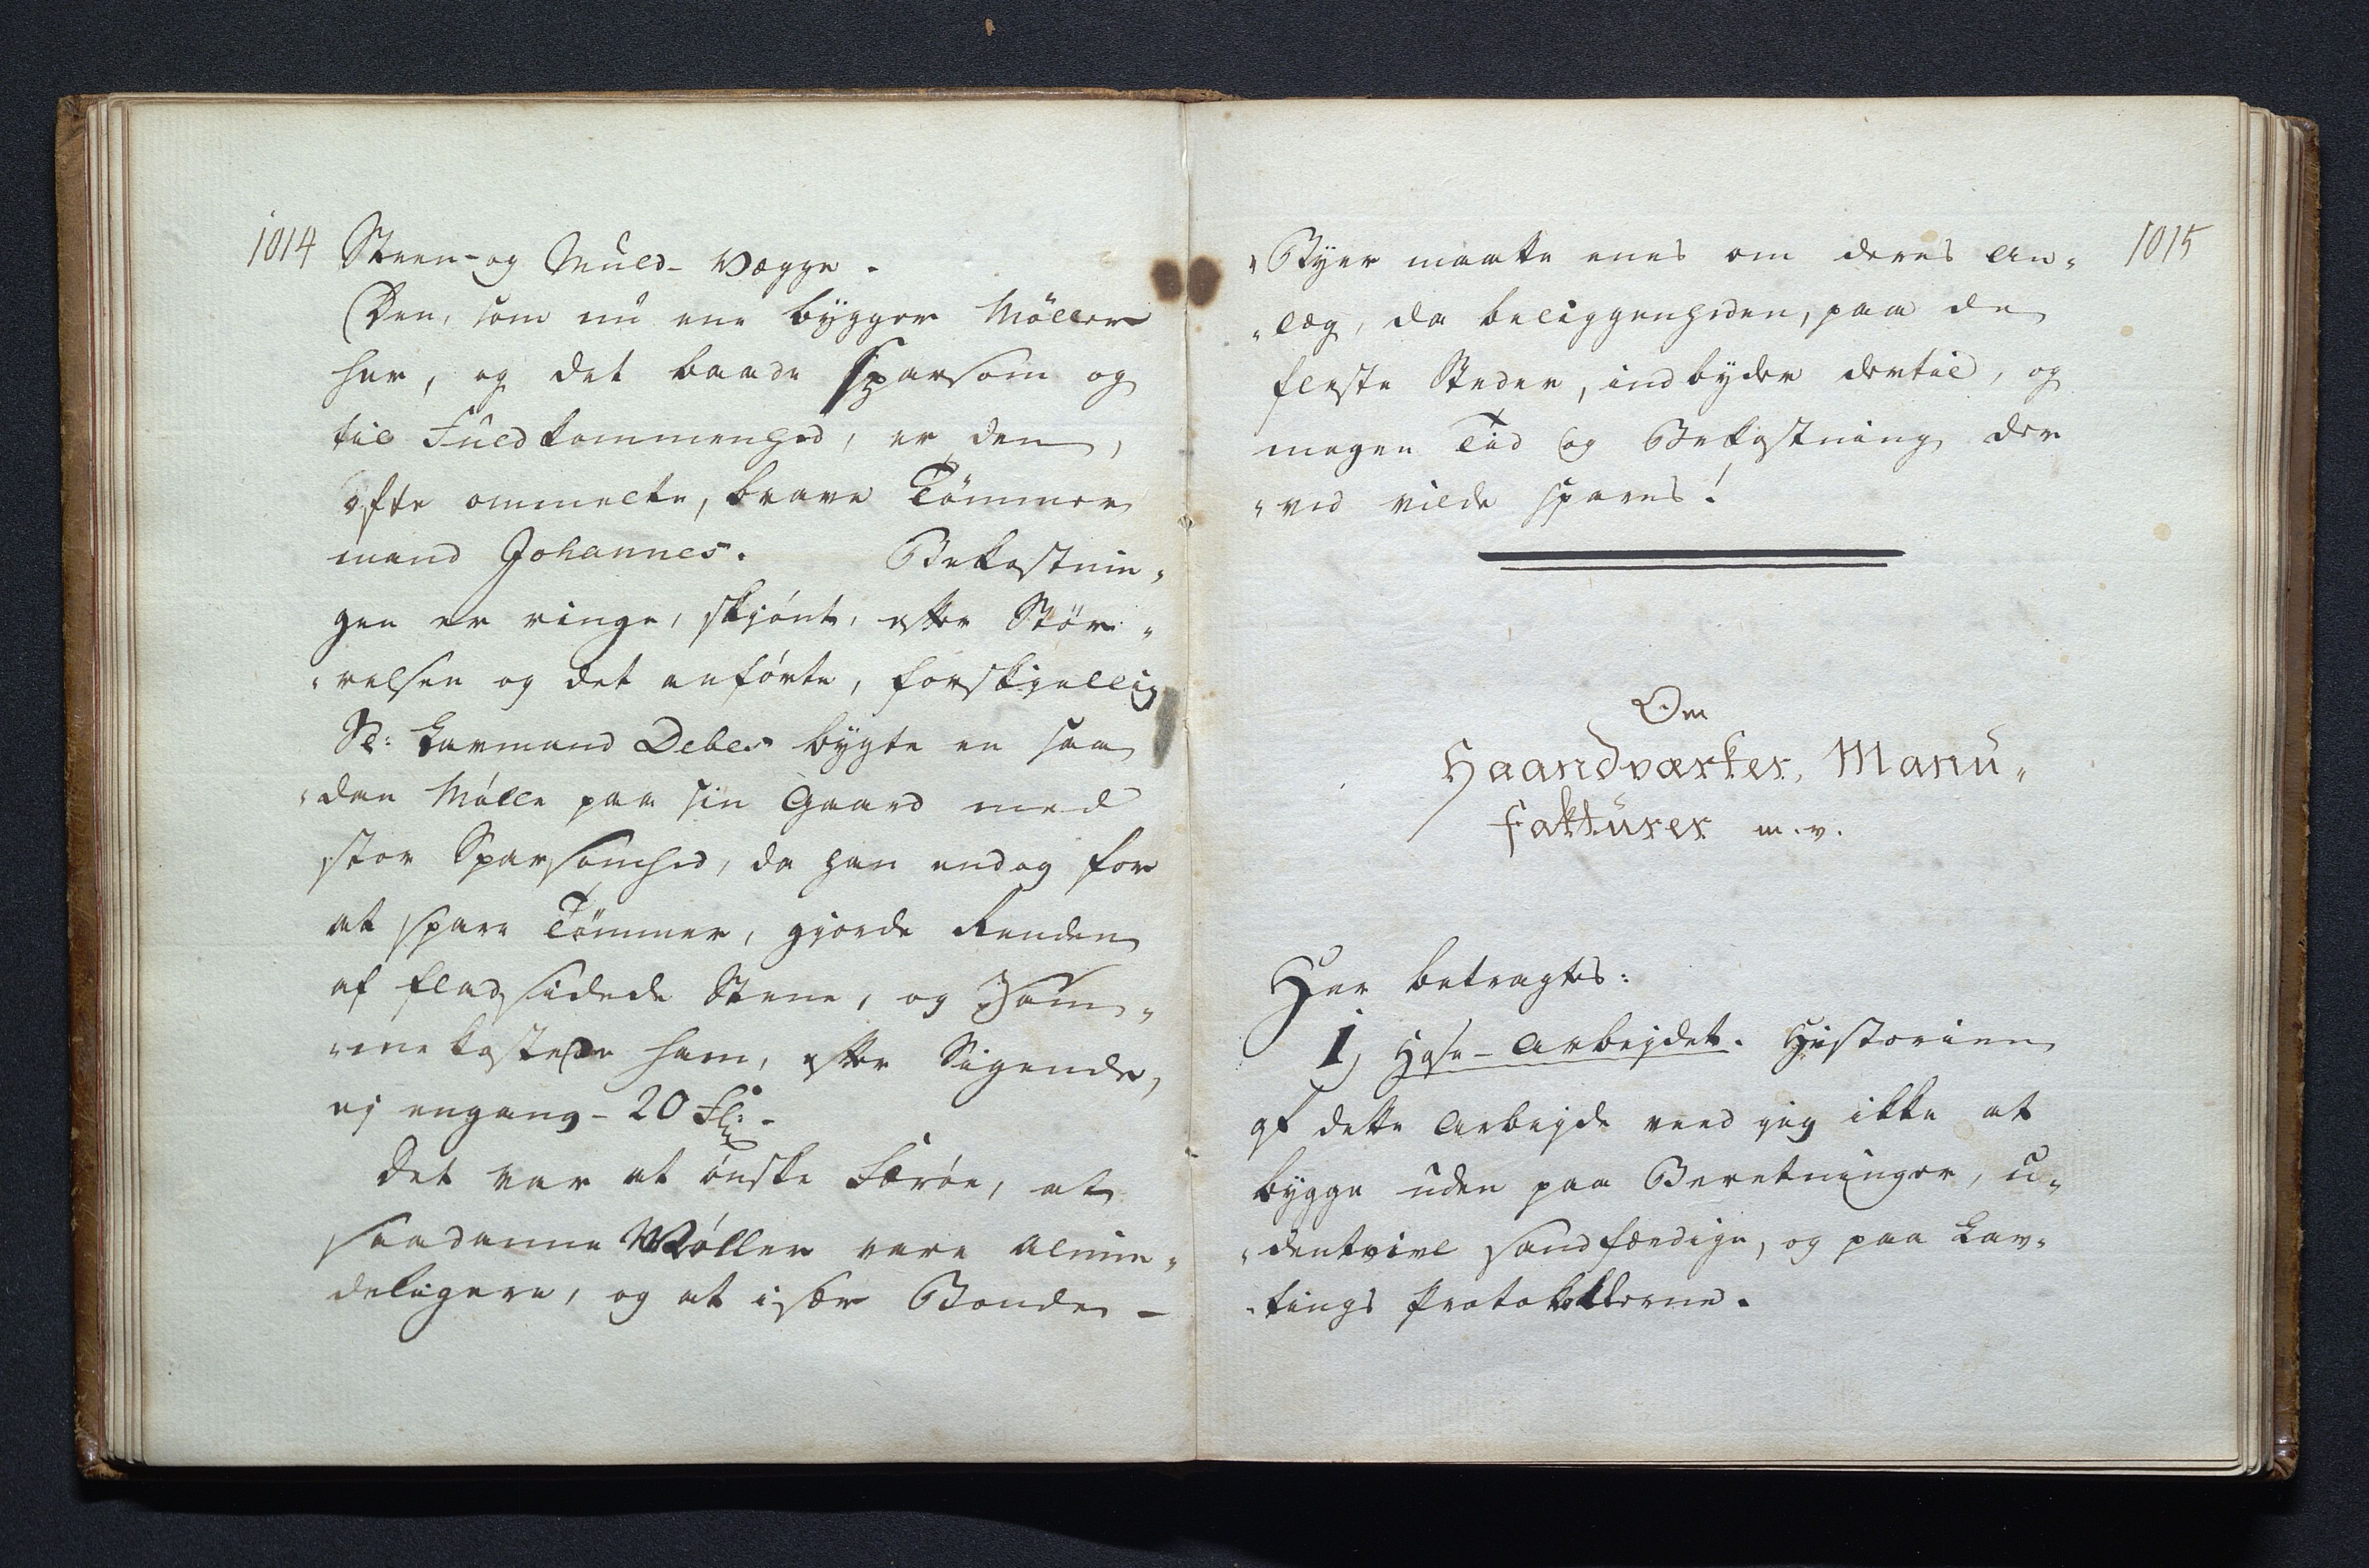 1014
Steen- og Muld- Vægge.
Den, som nu ene bÿgger Möller
her, og det baade sparsom og
til Fuldkommenhed, er den,
ofte ommelte, brave Tömmer
mand Johannes. Bekostnin„
gen er ringe, skjönt, efter Stör„
„relsen og det anförte, forskjellig
Sl: Laumand Debes bÿgte en saa
„dan Mölle paa sin Gaard med
stor Sparsomhed, da han endog for
at spare Tömmer, gjorde Renden
af fladsidede Stene, og Ham„
„me kostede ham, efter Sigende,
ej engang - 20 Fl: -
Det var at önske Færöe, at
saadanne Möller vare almin„
deligere, og at især Bonde -
1015
„Bÿer maatte enes om deres An„
„læg, da beliggenheden, paa de
fleste Steder, indbÿder dertil, og
megen Tid og Bekostning der
„ved vilde spares!
Om
Haandværker, Manu„
fakturer m.v.
Her betragtes:
1, Hose-Arbejdet. Historien
af dette Arbejde veed jeg ikke at
bÿgge uden paa Beretninger, u„
„dentvivl sandfærdige, og paa Lav„
„tings Protokollerne.